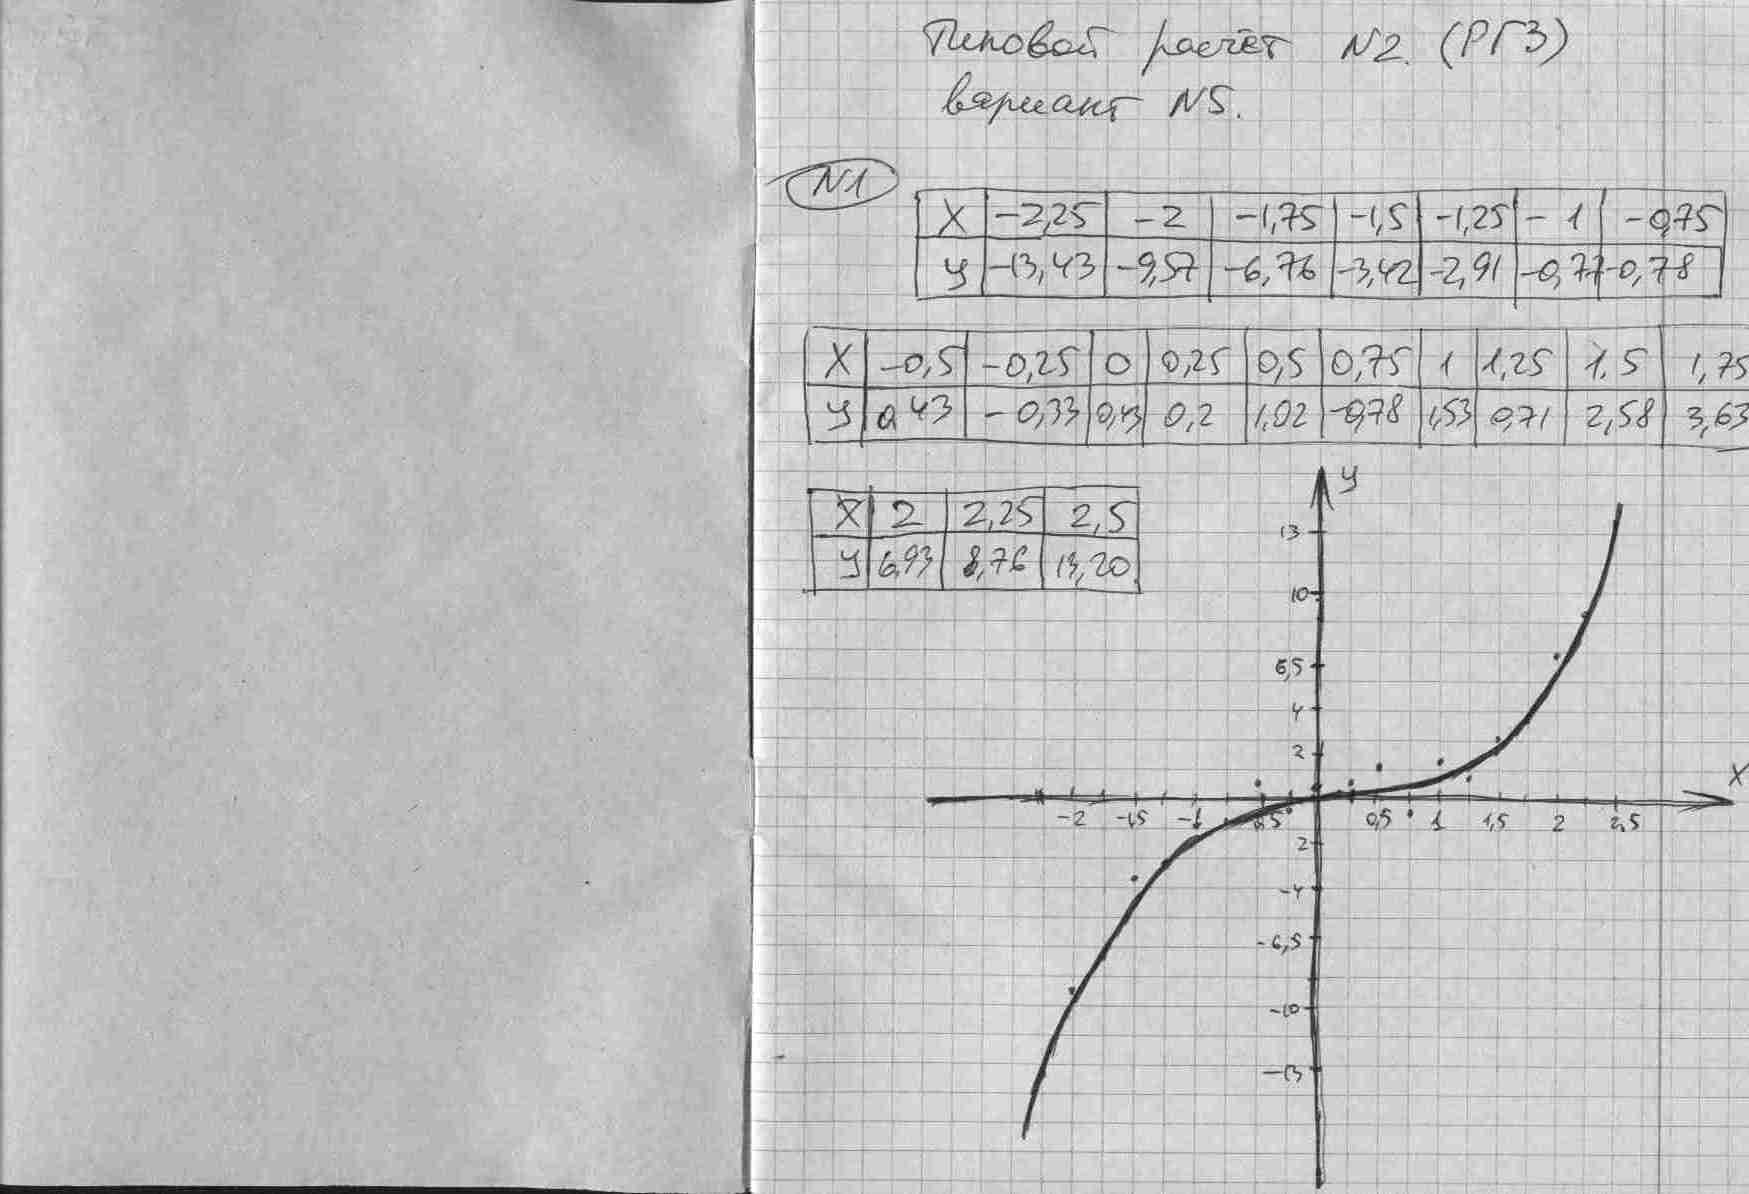 Типовой расчёт N2. (РГЗ)
вариант N5.
N1
X -2,25 -2 -1,75 -1,5 -1,25 -1 -0,75
y -13,43 -9,57 -6,76 -3,42 -2,91 -0,77 -0,78
X -0,5 -0,25 0 0,25 0,5 0,75 1 1,25 1,5 1,75
y 0,43 -0,33 0,43 0,2 1,02 -0,78 1,53 0,71 2,58 3,63
X 2 2,25 2,5
y 6,93 8,76 13,20
y
13
10
6,5
4
2
X
-2 -1,5 -1 0,5 0,5 1 1,5 2 2,5
2
-4
-6,5
-10
-13